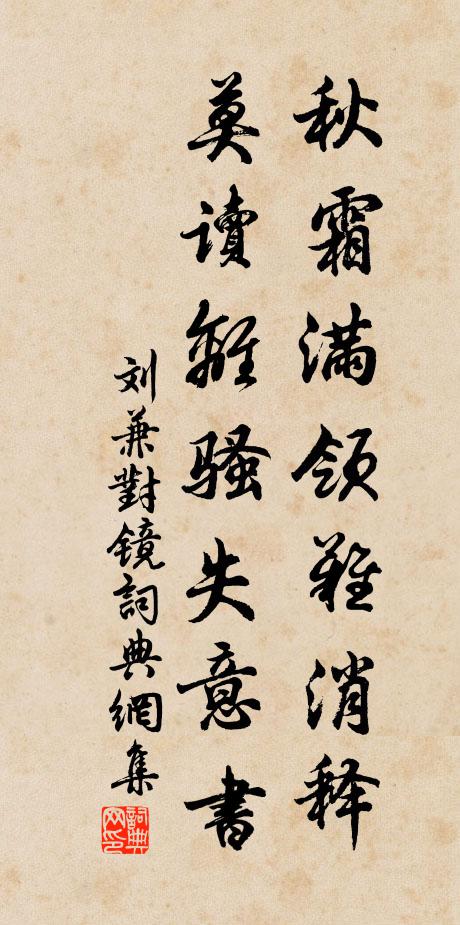 秋霜满领难消释
莫读离骚失意書
刘兼對镜詞典網集
詞典網印